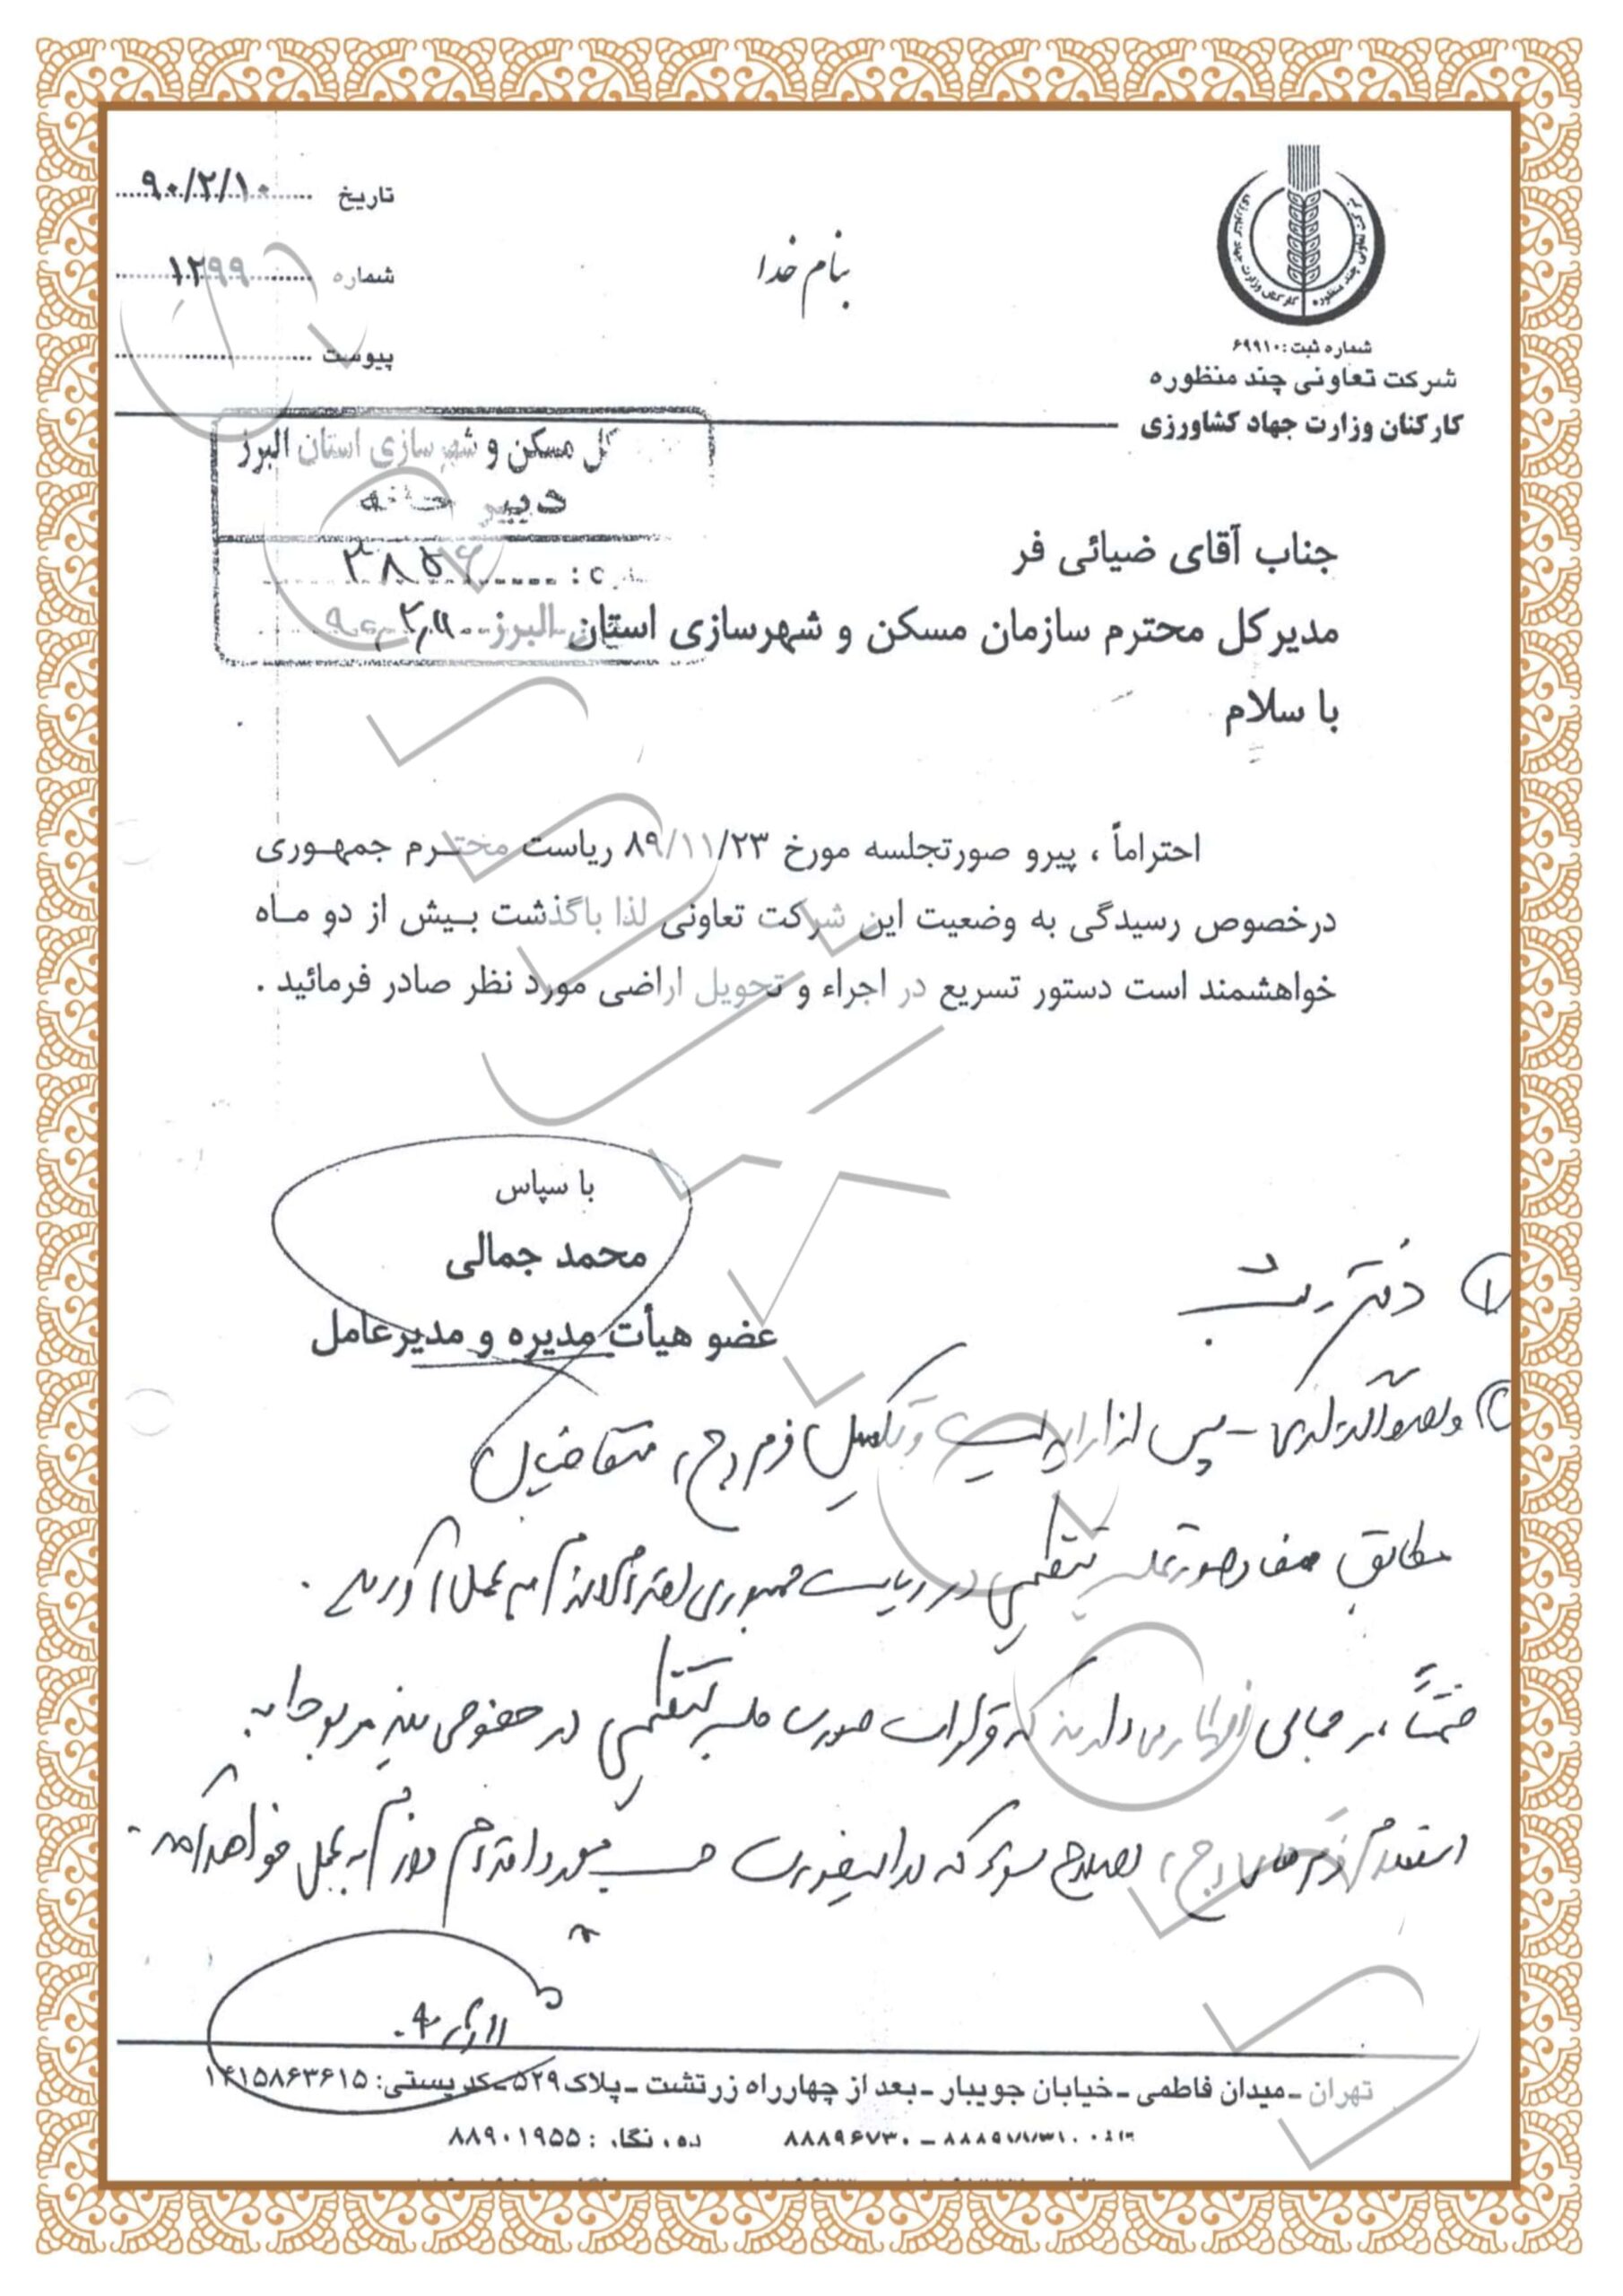 بنام خدا
تاریخ ۹۰/۲/۱۰
شماره ۱۲۹۹
پیوست
شماره ثبت: ۶۹۹۱۰
شرکت تعاونی چند منظوره
کارکنان وزارت جهاد کشاورزی
کل مسکن و شهرسازی استان البرز
دبیرخانه
۳۸۵۶
جناب آقای ضیائی فر
مدیرکل محترم سازمان مسکن و شهرسازی استان البرز
با سلام
احتراماً ، پیرو صورتجلسه مورخ ۸۹/۱۱/۲۳ ریاست محترم جمهوری
درخصوص رسیدگی به وضعیت این شرکت تعاونی لذا باگذشت بیش از دو ماه
خواهشمند است دستور تسریع در اجراء و تحویل اراضی مورد نظر صادر فرمائید .
با سپاس
محمد جمالی
عضو هیأت مدیره و مدیرعامل
۱ دفتر
پس از ارایه لیست و تکمیل فرم (ج) متقاضیان
مطابق مفاد صورتجلسه تنظیمی در ریاست جمهوری اقدام لازم به عمل آورید .
ضمناً جمالی اظهار می دارند که قرار است صورت جلسه تنظیمی در خصوص نیز
استعلام فرمهای (ج) اصلاح شود که در اینصورت اقدام لازم به عمل خواهد آمد .
تهران ـ میدان فاطمی ـ خیابان جویبار ـ بعد از چهارراه زرتشت ـ پلاک ۵۲۹ ـ کد پستی: ۱۴۱۵۸۶۳۶۱۵
۸۸۸۹۶۷۳۰ دورنگار: ۸۸۹۰۱۹۵۵